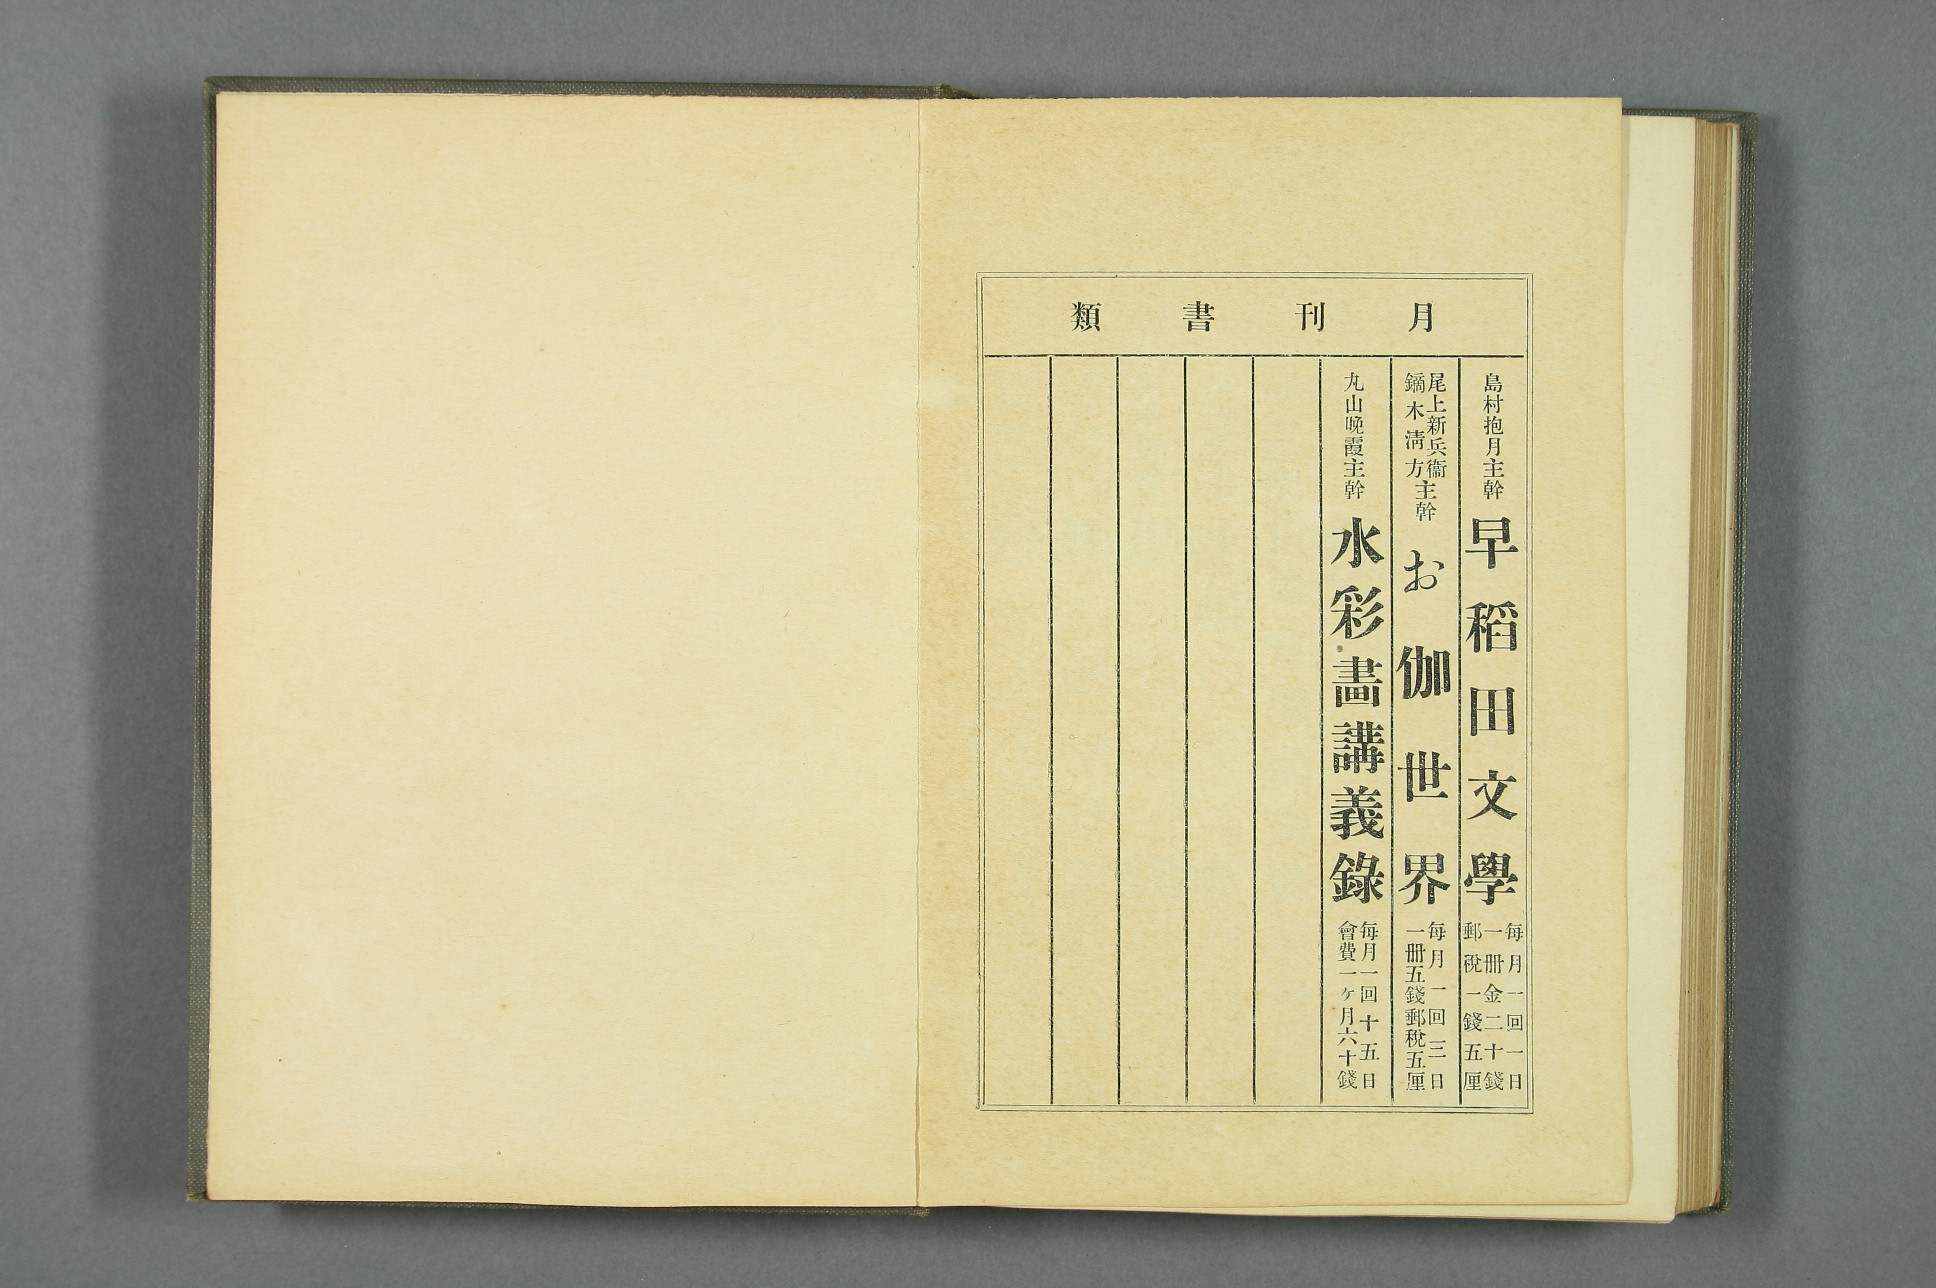 月刊書類
島村抱月主幹
早稻田文學
每月一回一日
一冊金二十錢
郵稅一錢五厘
尾上新兵衞
鏑木淸方
主幹
お伽世界
每月一回三日
一冊五錢郵稅五厘
丸山晚霞主幹
水彩畫講義錄
每月一回十五日
會費一ヶ月六十錢